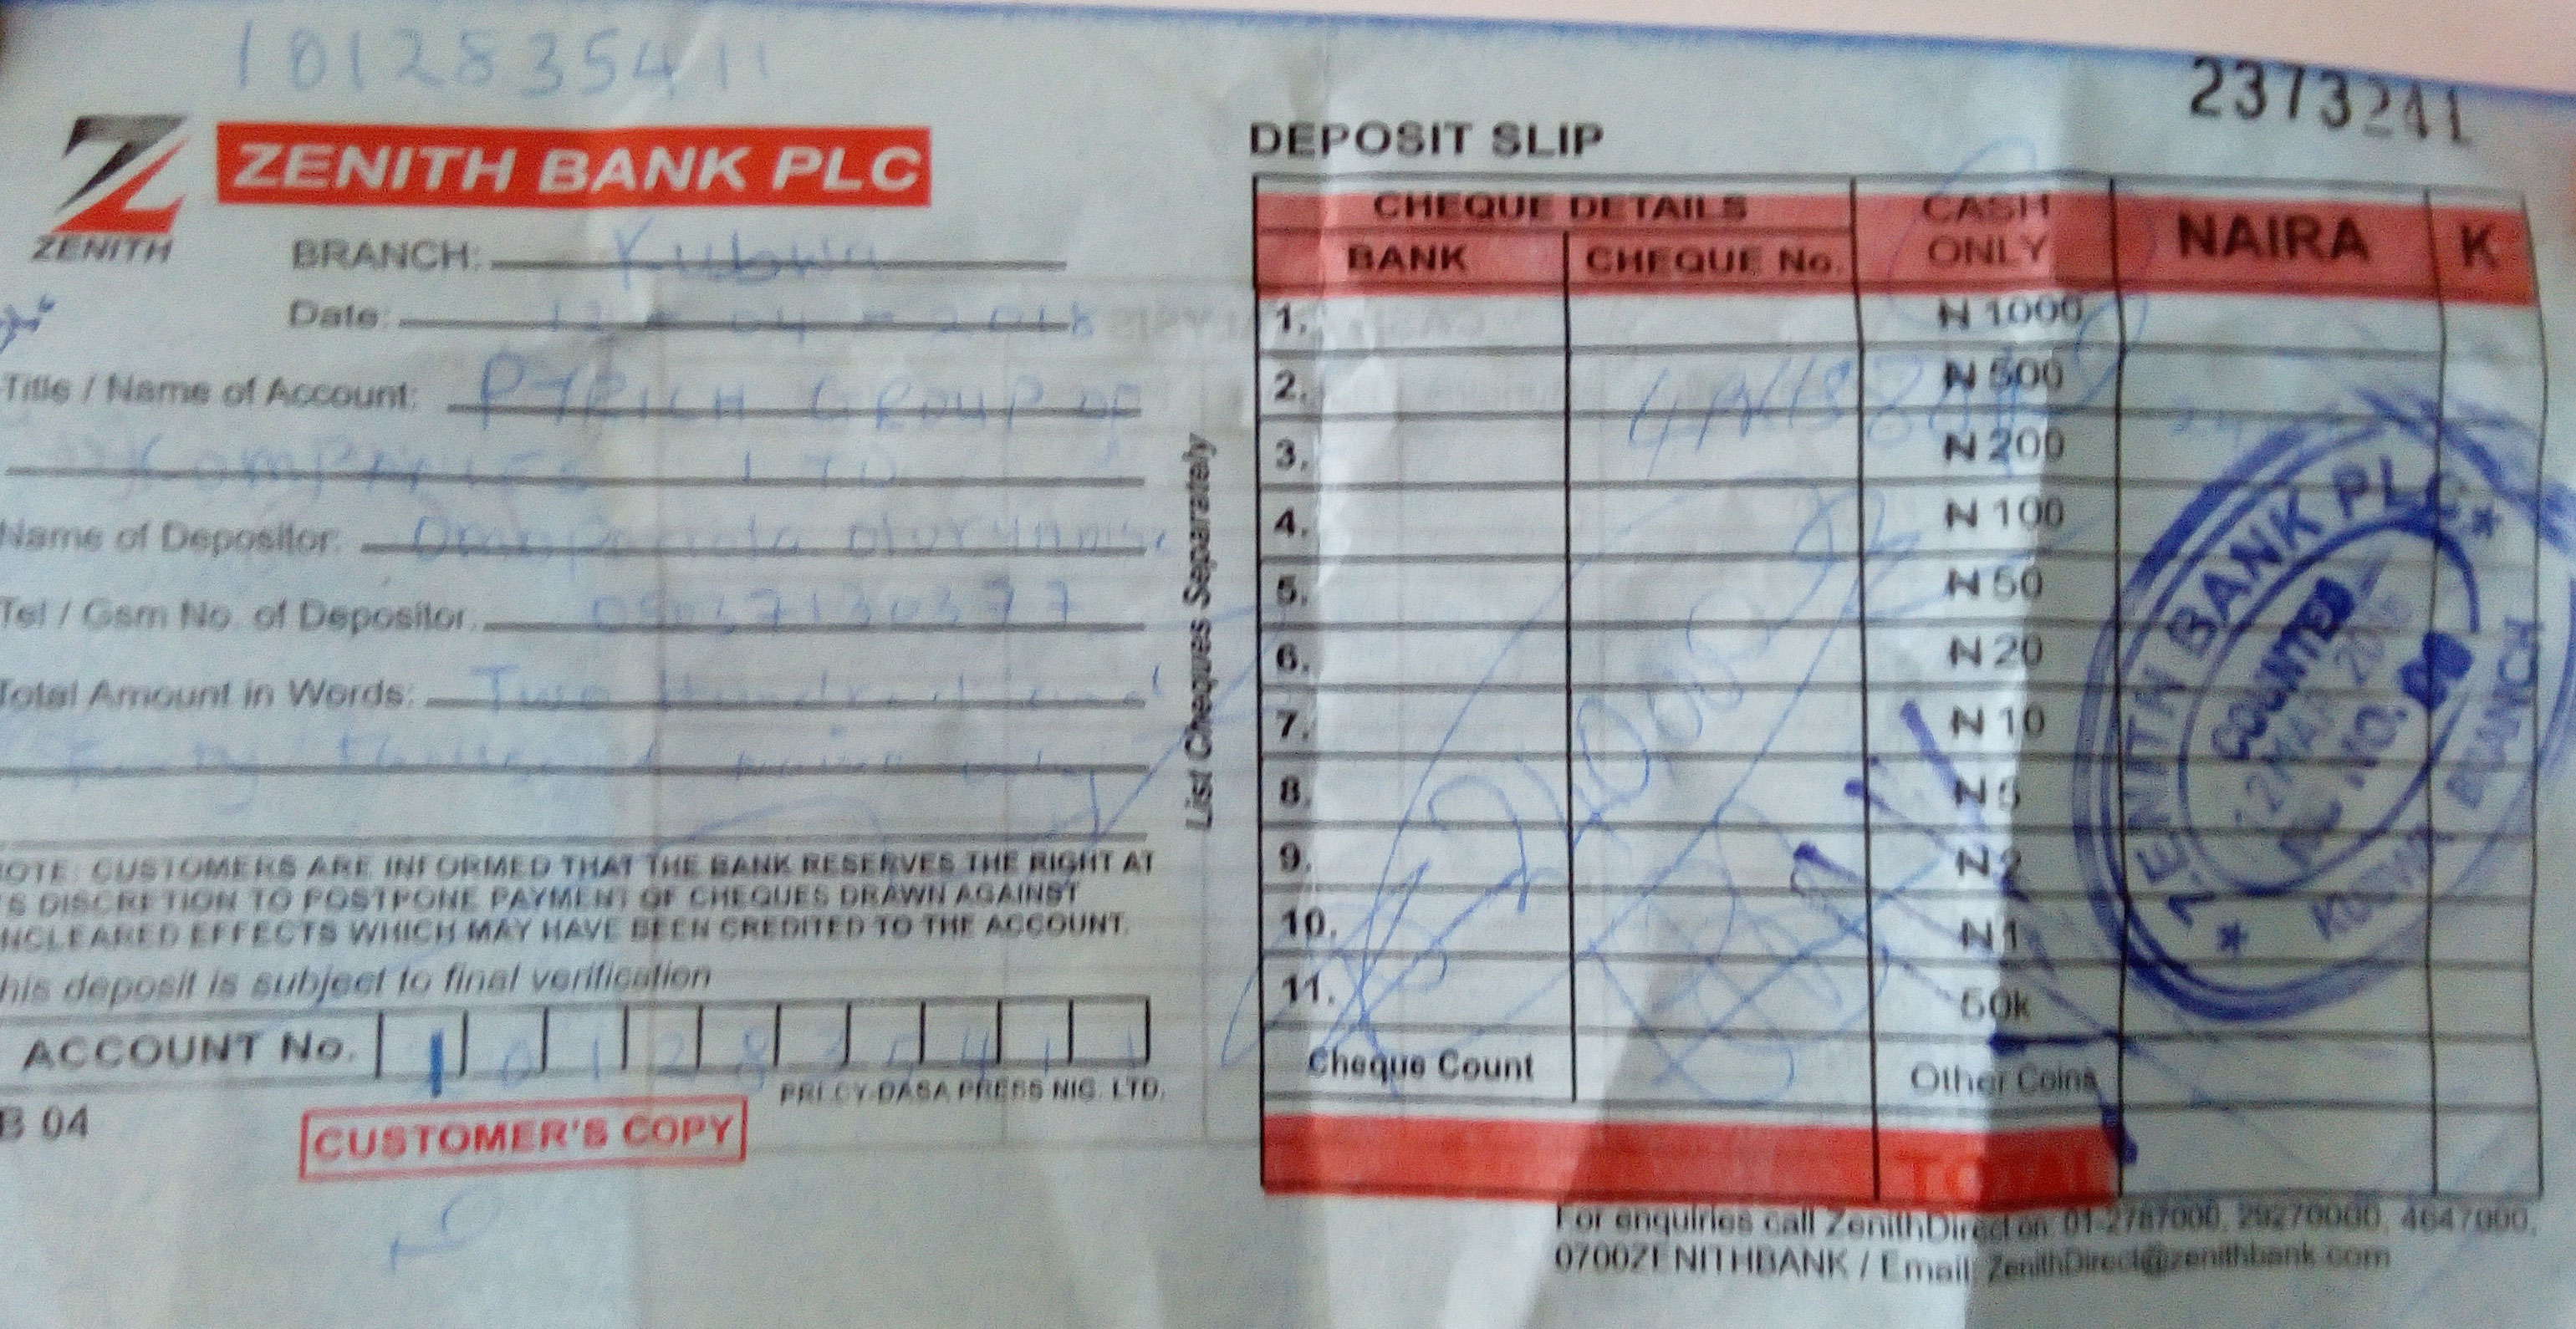 1012835411
2373241
ZENITH BANK PLC
ZENITH
DEPOSIT SLIP
BRANCH: Kubwa
Date: 12 - 04 - 2018
Title / Name of Account: PYRICH GROUP OF
COMPANIES LTD
Name of Depositor:
Tel / Gsm No. of Depositor.
Total Amount in Words: Two Hundred and
Forty thousand naira only
OTE: CUSTOMERS ARE INFORMED THAT THE BANK RESERVES THE RIGHT AT
'S DISCRETION TO POSTPONE PAYMENT OF CHEQUES DRAWN AGAINST
NCLEARED EFFECTS WHICH MAY HAVE BEEN CREDITED TO THE ACCOUNT.
his deposit is subject to final verification
ACCOUNT No. 1 0 1 2 8 3 5 4 1 1
PRI.CY-DASA PRESS NIG. LTD.
B 04
CUSTOMER'S COPY
List Cheques Separately
CHEQUE DETAILS CASH ONLY NAIRA K
BANK CHEQUE No.
1. N 1000
2. N 500
3. N 200
4. N 100
5. N 50
6. N 20
7. N 10
8. N 5
9. N 2
10. N 1
11. 50k
Cheque Count Other Coins
TOTAL
ZENITH BANK PLC
COUNTED
KUBWA BRANCH
For enquiries call ZenithDirect on 01-2787000, 29270000, 4647000,
0700ZENITHBANK / Email: ZenithDirect@zenithbank.com